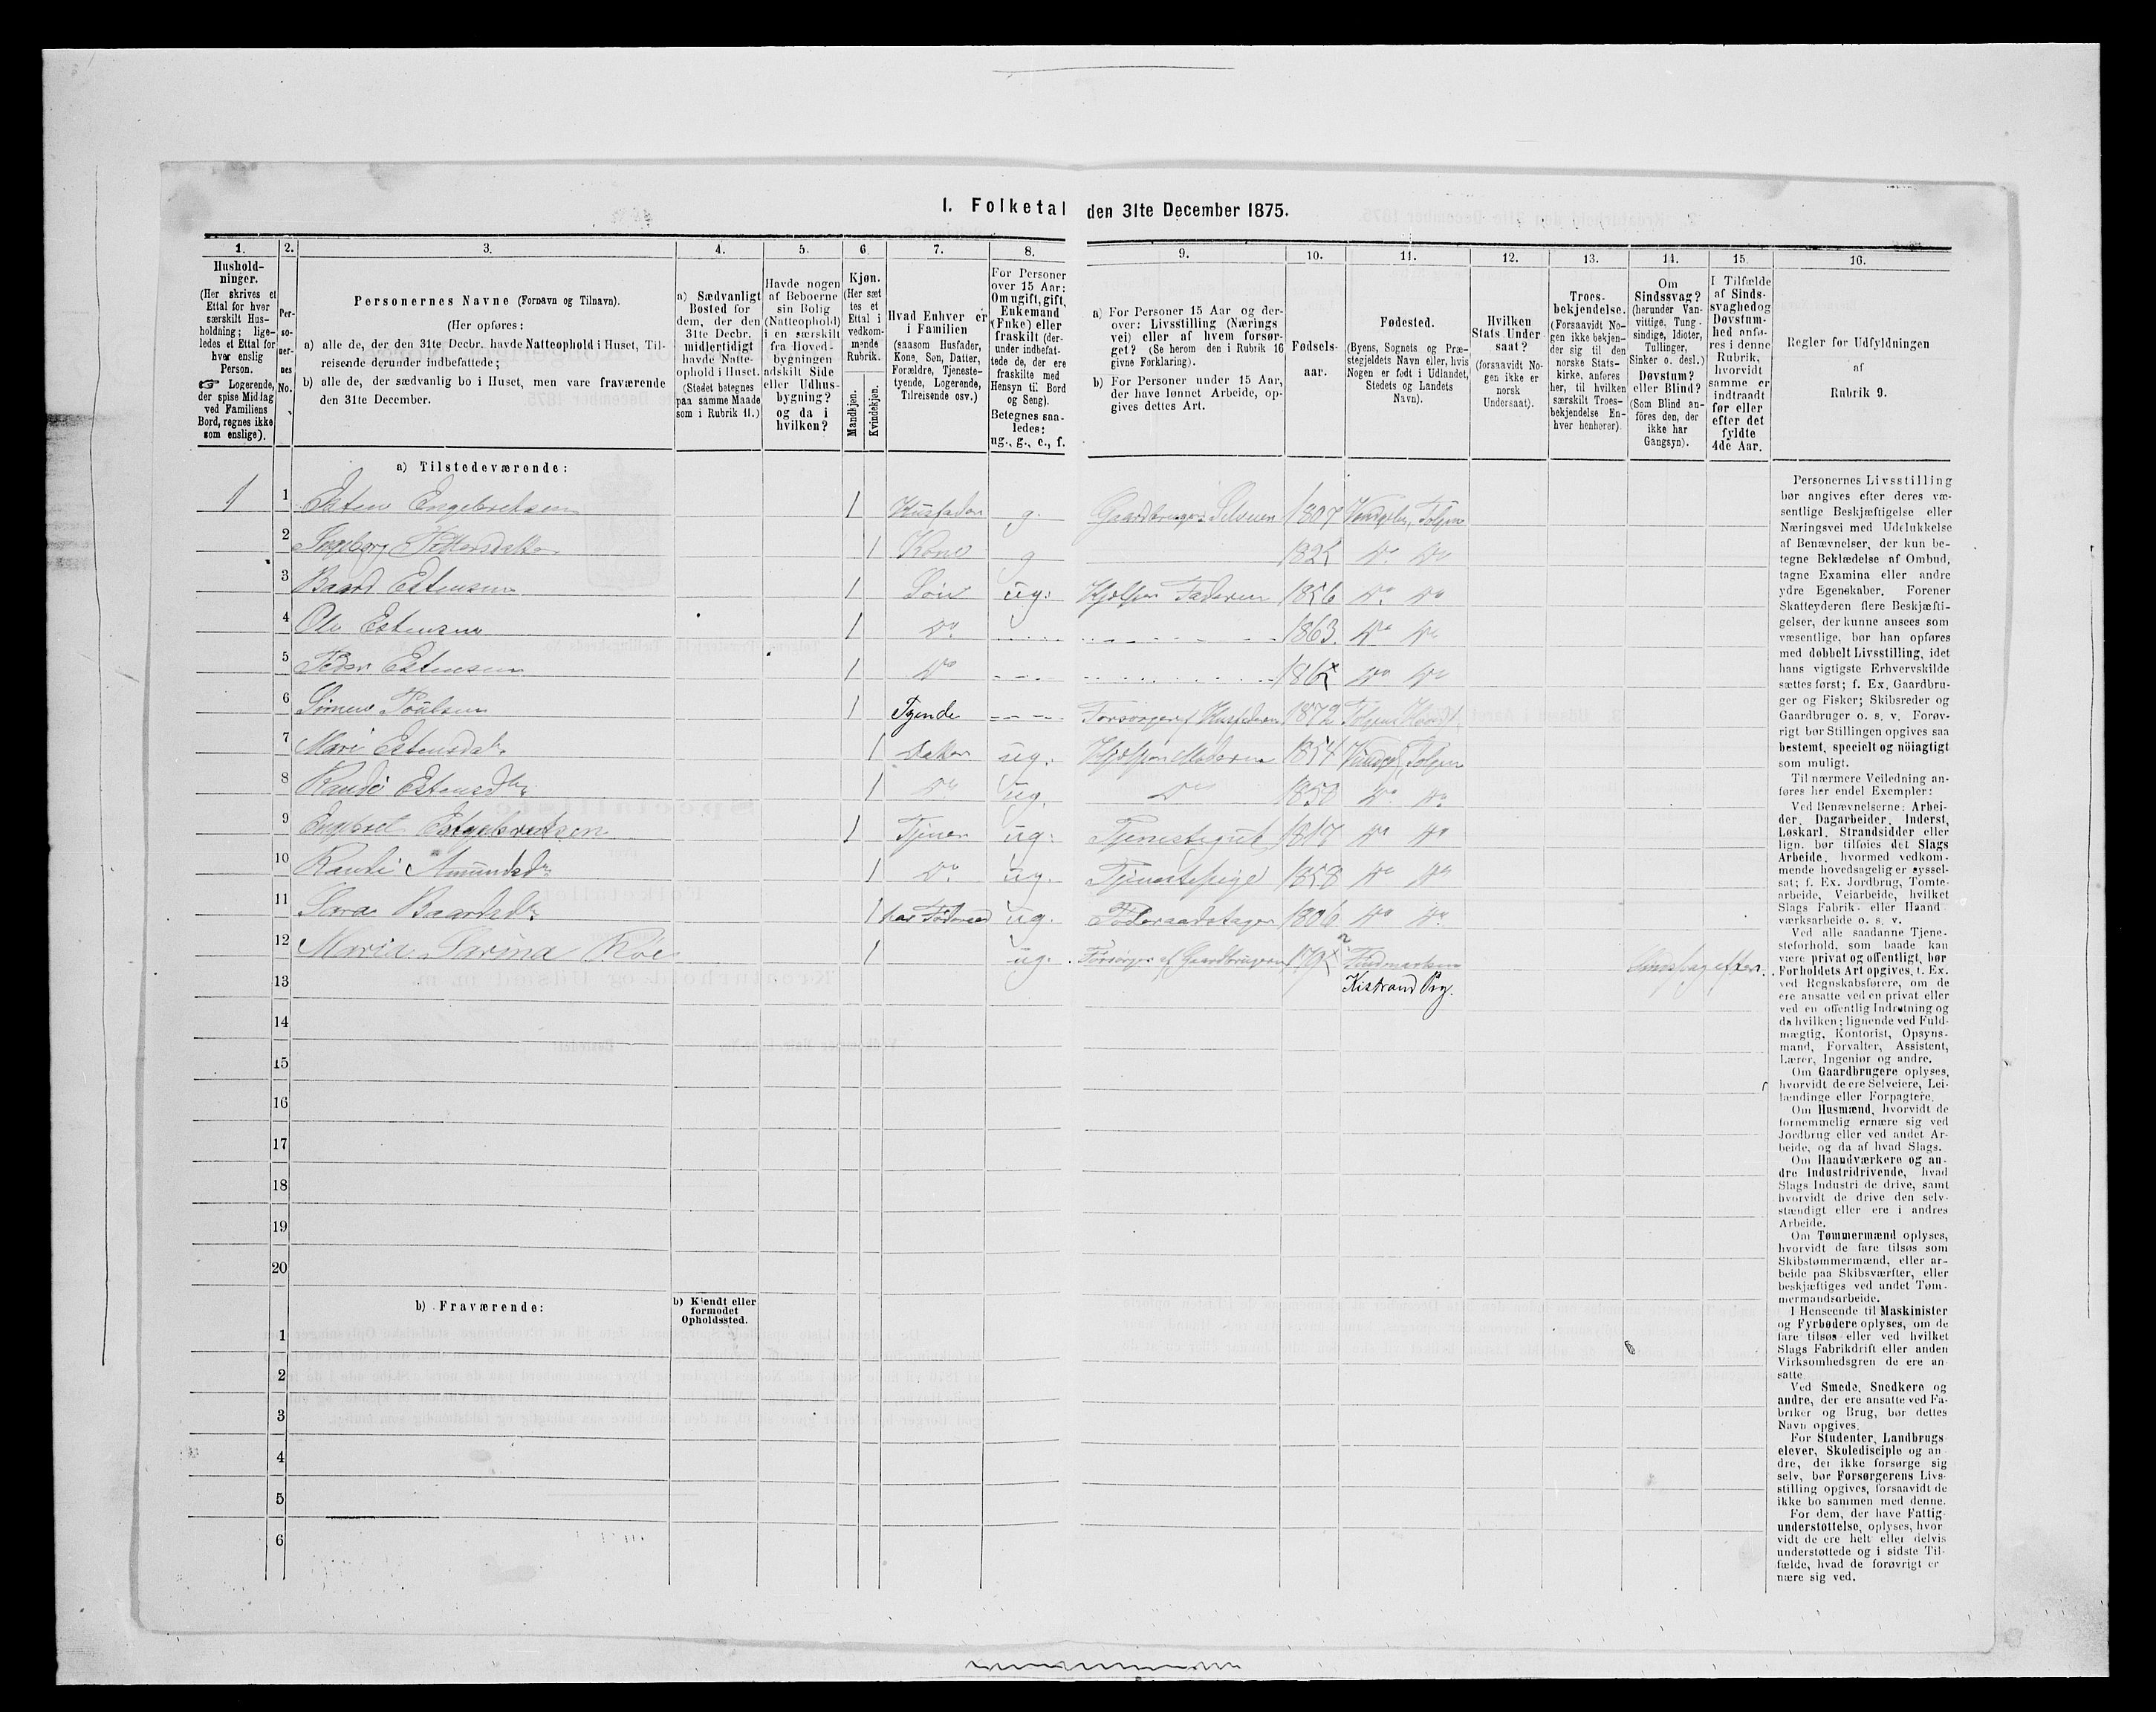 I. Folketal den 31te December 1875.
1. 2. 3. 4. 5. 6. 7. 8. 9. 10. 11. 12. 13. 14. 15. 16.
Husholdninger.
(Her skrives et
Ettal for hver
særskilt Hus-
holdning; lige-
ledes et Ettal for
hver enslig
Person.
☞ Logerende,
der spise Middag
ved Familiens
Bord, regnes ikke
som enslige).
Per-
so-
ner-
nes
No.
Personernes Navne (Fornavn og Tilnavn).
(Her opføres:
a) alle de, der den 31te Decbr. havde Natteophold i Huset, Til-
reisende derunder indbefattede;
b) alle de, der sædvanlig bo i Huset, men vare fraværende
den 31te December.
a) Sædvanligt
Bosted for
dem, der den
31te Decbr.
midlertidigt
havde Natte-
ophold i Huset.
(Stedet betegnes
paa samme Maade
som i Rubrik 11.)
Havde nogen
af Beboerne
sin Bolig
(Natteophold)
i en særskilt
fra Hoved-
bygningen
adskilt Side
eller Udhus-
bygning?
og da i
hvilken?
Kjøn.
(Her sæt
tes et
Ettal i
vedkom-
mende
Rubrik.
Mandkjøn.
Kvindekjøn.
Hvad Enhver er
i Familien
(saasom Husfader,
Kone, Søn, Datter,
Forældre, Tjeneste-
tyende, Logerende,
Tilreisende osv.)
For Personer
over 15 Aar:
Om ugift, gift,
Enkemand
(Enke) eller
fraskilt (der-
under indbefat-
tede de, der ere
fraskilte med
Hensyn til Bord
og Seng).
Betegnes saa-
ledes:
ug., g., e., f.
a) For Personer 15 Aar og der-
over: Livsstilling (Nærings
vei) eller af hvem forsør-
get? (Se herom den i Rubrik 16
givne Forklaring).
b) For Personer under 15 Aar,
der have lønnet Arbeide, op-
gives dettes Art.
Fødsels-
aar.
Fødested.
(Byens, Sognets og Præ-
stegjeldets Navn eller, hvis
Nogen er født i Udlandet,
Stedets og Landets
Navn).
Hvilken
Stats Under
saat?
(forsaavidt No-
gen ikke er
norsk
Undersaat).
Troes-
bekjendelse.
(Forsaavidt No-
gen ikke bekjen-
der sig til den
norske Stats-
kirke, anføres
her, til hvilken
særskilt Troes-
bekjendelse En-
hver henhører).
Om
Sindssvag?
(herunder Van-
vittige, Tung-
sindige, Idioter,
Tullinger,
Sinker o. desl.)
Døvstum?
eller Blind?
(Som Blind an-
føres den, der
ikke har
Gangsyn).
I Tilfælde
af Sinds-
svaghed og
Døvstum-
hed anfø-
res i denne
Rubrik,
hvorvidt
samme er
indtraadt
før eller
efter det
fyldte
4de Aar.
Regler for Udfyldningen
af
Rubrik 9.
a) Tilstedeværende:
1 1 Esten Engebretsen 1 Husfader g. Gaardbruger Selveier 1807 Tolgen
2 Ingeborg 1 Kone g Do Do
3 Baard Estensen 1 Søn ug: Hjelper Faderen 1856 Do Do
4 Ole Estensen 1 Do 1863. Do Do
5 Peder Estensen 1 Do Do Do
6 1 Tyende Forsørges af Husfaderen 1872 Tolgen
7 Mari Estensdtr 1 Datter ug. Hjelper Moderen 1854 Tolgen
8 Randi Estensdtr 1 Do ug. Do 1850 Do Do
9 Engebret Engebretsen 1 Tjener ug: Tjenestegut 1817 Do Do
10 Randi Amundsdr 1 Do ug. Tjenestepige 1858 Do Do
11 Sara Baardsdr 1 har Føderaad ug. Føderaadstager 1806 Do Do
12 Maria Sarina Röe 1 ug. Forsørges af Gaardbrugeren Findmarken Sindssvag efter.
Kistrand Prg.
13
14
15
16
17
18
19
20
b) Fraværende:
b) Kjendt eller
formodet
Opholdssted.
1
2
3
4
5
6
Personernes Livsstilling
bør angives efter deres væ-
sentlige Beskjæftigelse eller
Næringsvei med Udelukkelse
af Benævnelser, der kun be-
tegne Beklædelse af Ombud,
tagne Examina eller andre
ydre Egenskaber. Forener
Skatteyderen flere Beskjæfti-
gelser, der kunne ansees som
væsentlige, bør han opføres
med dobbelt Livsstilling, idet
hans vigtigste Erhvervskilde
sættes først; f. Ex. Gaardbru-
ger og Fisker; Skibsreder og
Gaardbruger o. s. v. Forøv-
rigt bør Stillingen opgives saa
bestemt, specielt og nöiagtigt
som muligt.
Til nærmere Veiledning an-
føres her endel Exempler:
Ved Benævnelserne: Arbei-
der, Dagarbeider, Inderst,
Løskarl, Strandsidder eller
lign. bør tilføies det Slags
Arbeide, hvormed vedkom-
mende hovedsagelig er syssel-
sat; f. Ex. Jordbrug, Tomte-
arbeide, Veiarbeide, hvilket
Slags Fabrik- eller Haand
værksarbeide o. s. v.
Ved alle saadanne Tjene-
steforhold, som baade kan
være privat og offentligt, bør
Forholdets Art opgives, t. Ex.
ved Regnskabsførere, om de
ere ansatte ved en privat eller
ved en offentlig Indretning og
da hvilken; lignende ved Fuld-
mægtig, Kontorist, Opsyns-
mand, Forvalter, Assistent,
Lærer, Ingeniør og andre.
Om Gaardbrugere oplyses,
hvorvidt de ere Selveiere, Lei-
lændinge eller Forpagtere.
Om Husmænd, hvorvidt de
fornemmelig ernære sig ved
Jordbrug eller ved andet Ar-
beide, og da af hvad Slags.
Om Haandværkere og an-
dre Industridrivende, hvad
Slags Industri de drive, samt
hvorvidt de drive den selv-
stændigt eller ere i andres
Arbeide.
Om Tømmermænd oplyses,
hvorvidt de fare tilsøs som
Skibstømmermænd, eller ar-
beide paa Skibsværfter, eller
beskjæftiges ved andet Tøm-
mermandsarbeide.
I Henseende til Maskinister
og Fyrbødere oplyses, om de
fare tilsøs eller ved hvilket
Slags Fabrikdrift eller anden
Virksomhedsgren de ere an-
satte
Ved Smede, Snedkere og
andre, der ere ansatte ved Fa-
briker og Brug, bør dettes
Navn opgives.
For Studenter, Landbrugs
elever, Skoledisciple og an
dre, der ikke forsørge sig
selv, bør Forsørgerens Livs-
stilling opgives, forsaavidt de
ikke bo sammen med denne.
For dem, der have Fattig
understøttelse, oplyses, hvor
vidt de ere helt eller delvis
understøttede og i sidste Til-
fælde, hvad de forøvrigt er
nære sig ved.